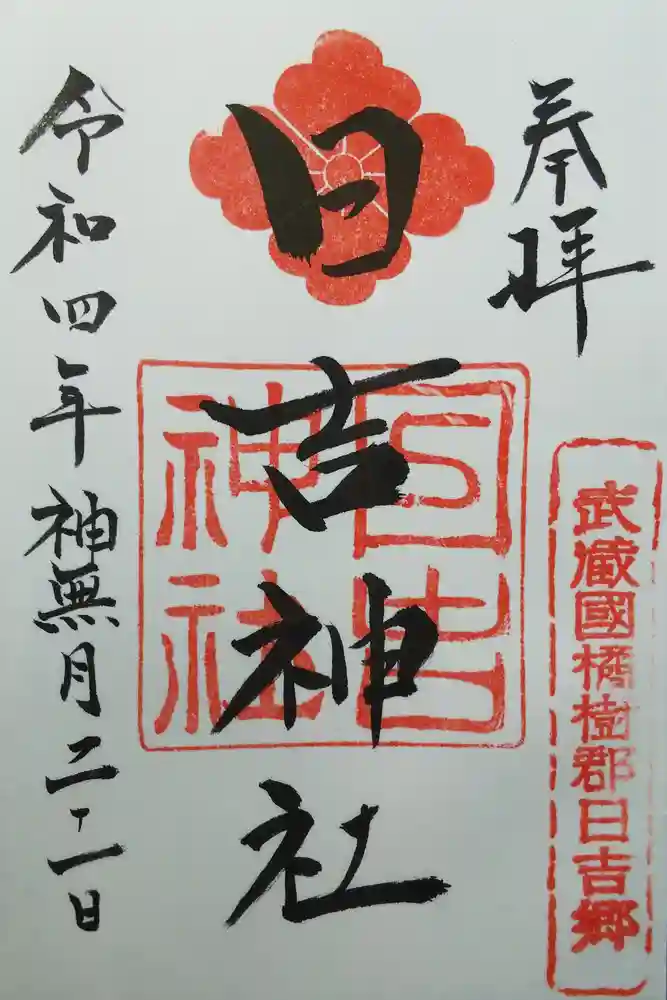 奉拝
武蔵國橘樹郡日吉郷
日吉神社
日吉神社
令和四年神無月二二日